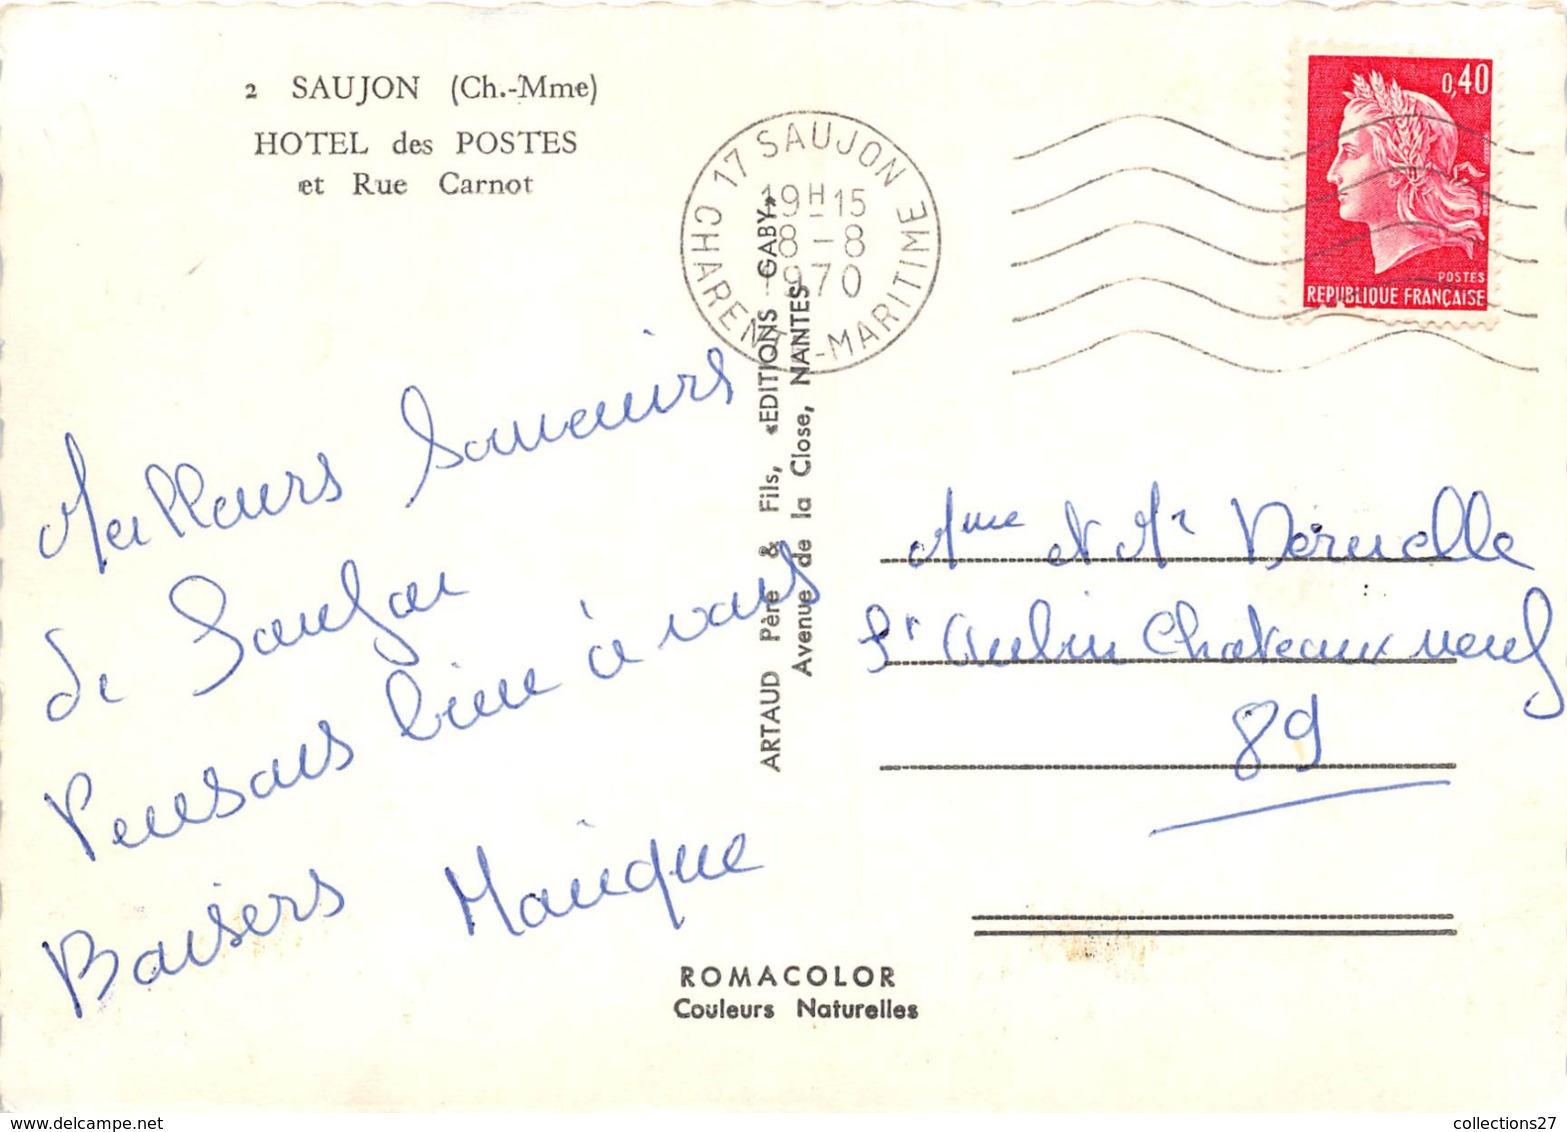 2 SAUJON (Ch.-Mme)
HOTEL des POSTES
et Rue Carnot
17 SAUJON
19H15
8-8
1970
CHARENTE-MARITIME
0,40
POSTES
REPUBLIQUE FRANÇAISE
Meilleurs Souvenirs
de Saujon
Pensons bien à vous
Baisers Monique
ARTAUD Père & Fils, «EDITIONS GABY»
Avenue de la Close, NANTES
Mme et Mr Vernelle
St Aubin Chateaux neuf
89
ROMACOLOR
Couleurs Naturelles
collections27